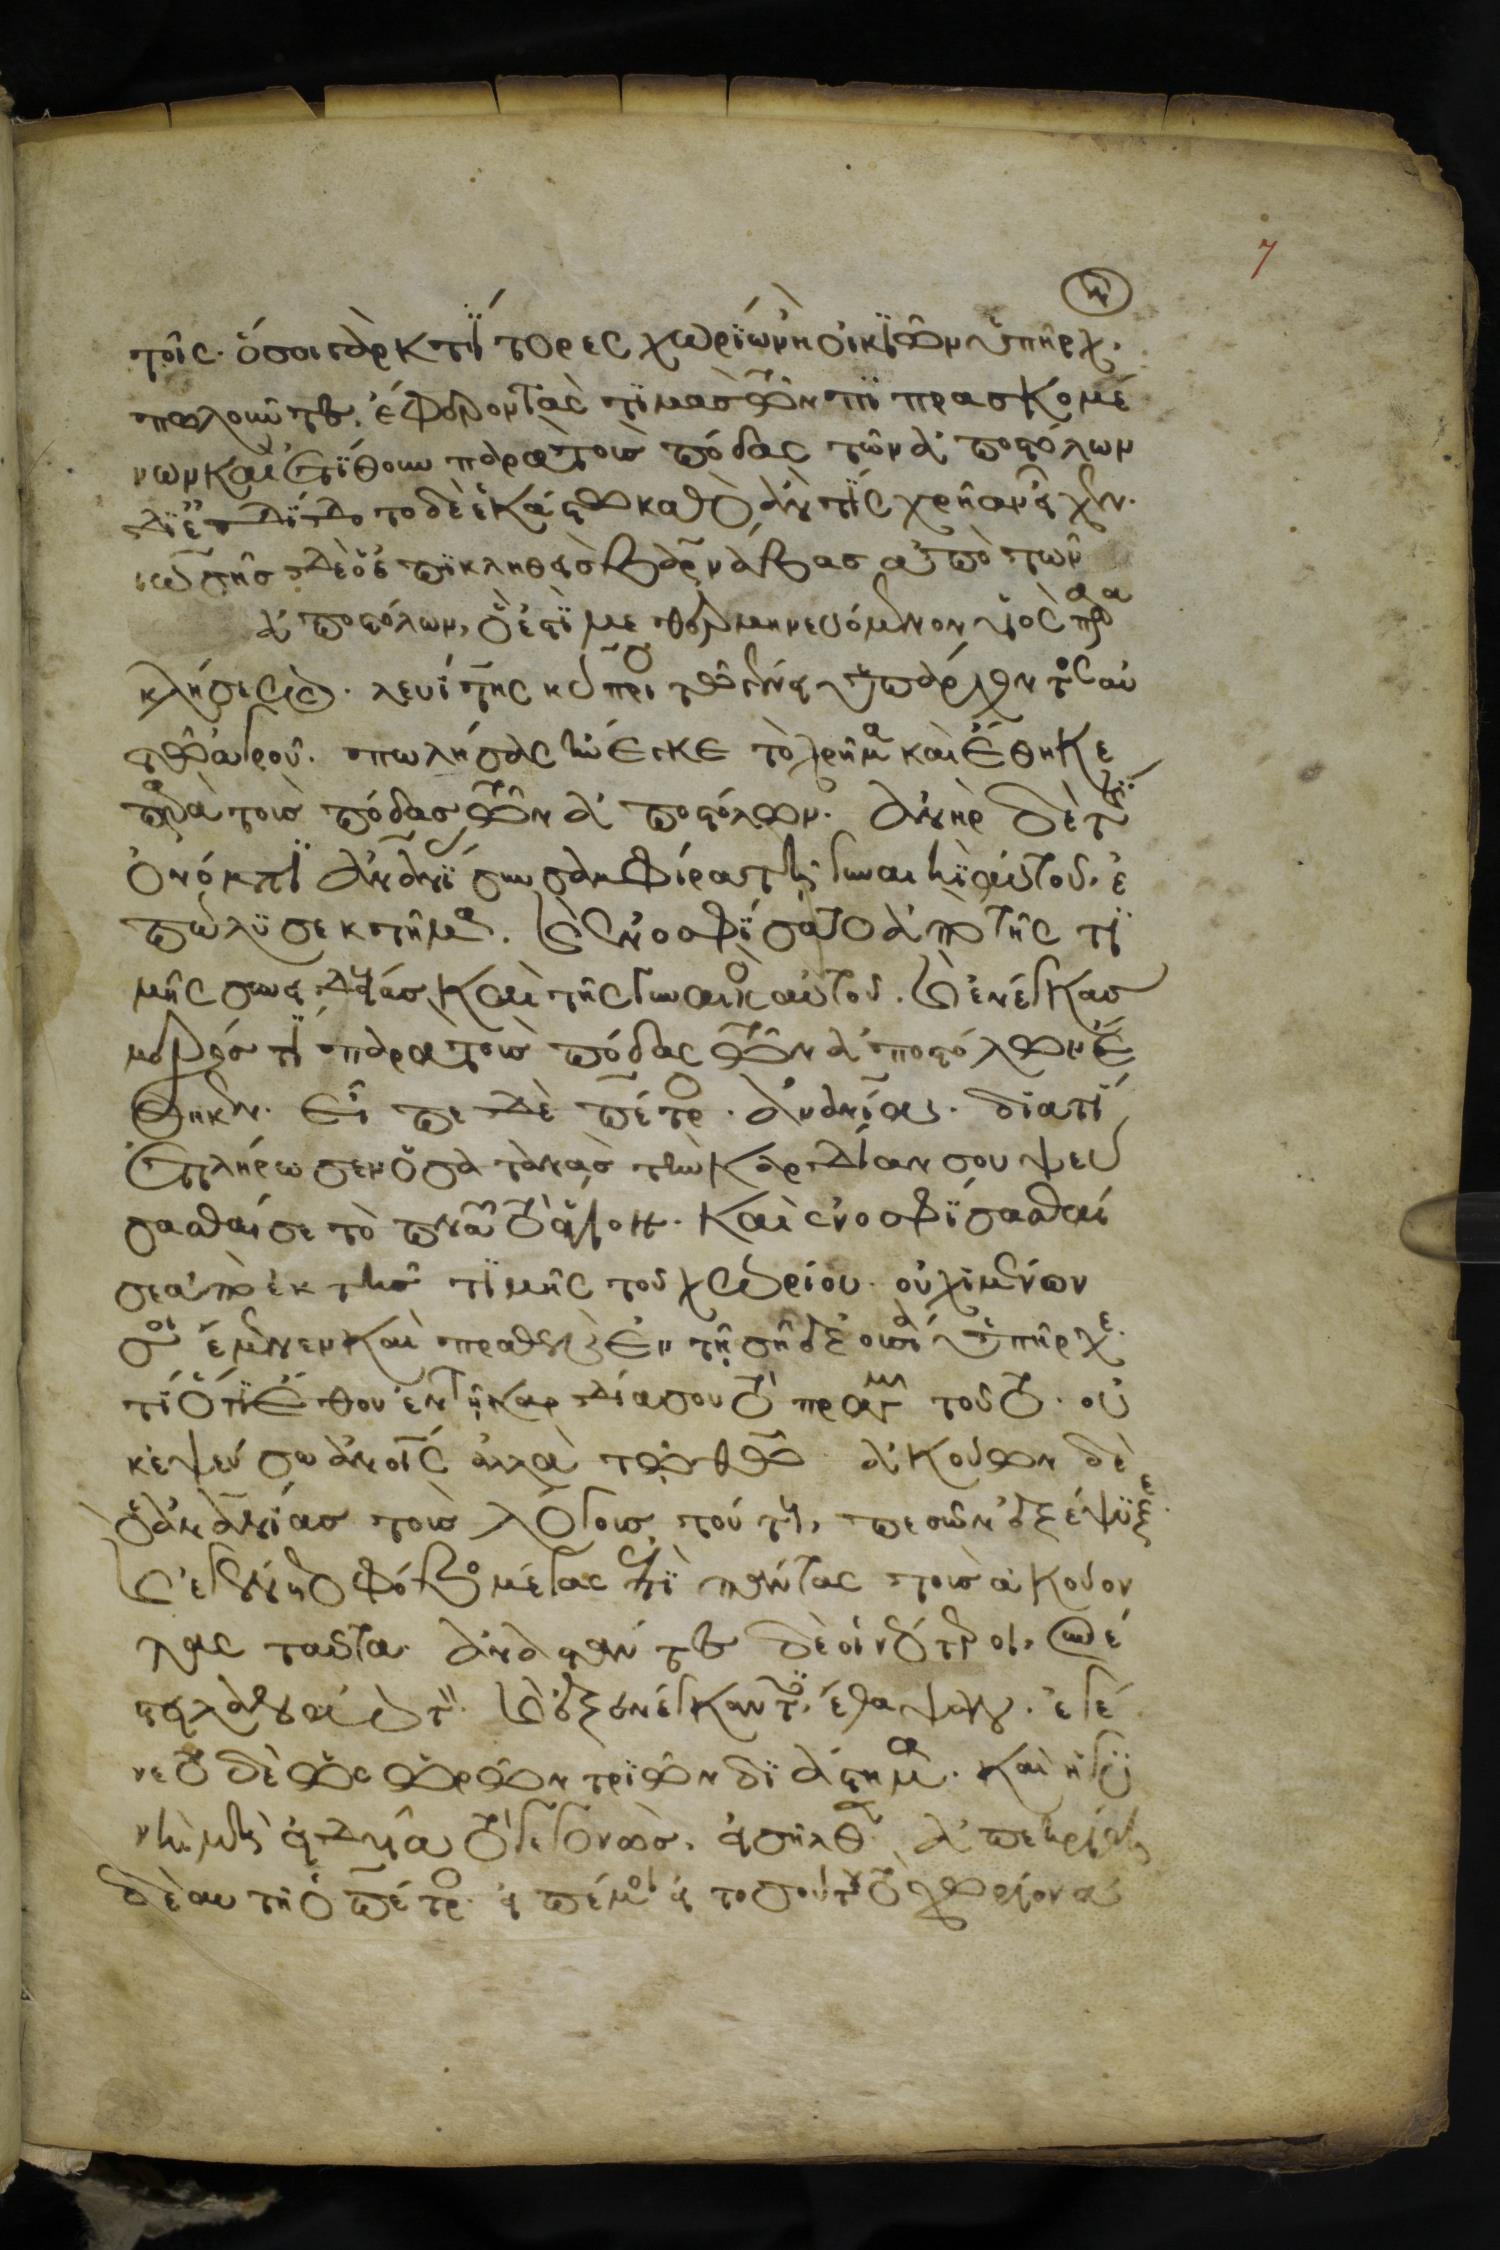 7
τοῖς· ὅσοι γὰρ κτίτορες χωρίων ἢ οἰκιῶν ὑπῆρχ,
πωλοῦντες, ἔφερον τὰς τιμὰς τῶν πιπρασκομέ
νων καὶ ἐτίθουν παρὰ τοὺς πόδας τῶν ἀποστόλων
διεδίδοτο δὲ ἑκάστω καθὸ ἄν τις χρείαν εἶχεν.
ἰωσῆς δὲ ὁ ἐπικληθεὶς βαρνάβας ἀπὸ τῶν
ἀποστόλων, ὅ ἐστι μεθερμηνευόμενον υἱὸς παρα
κλήσεως. λευίτης κύπριος τῶ γένει ὑπάρχοντος αὐ
τῶ ἀγροῦ. πωλήσας ἤνεγκε τὸ χρῆμα καὶ ἔθηκε
παρὰ τοὺς πόδας τῶν ἀποστόλων. ἀνὴρ δέ τις
ὀνόματι ἀνανίας σὺν σαπφίρα τῆ γυναικὶ αὐτοῦ, ἐ
πώλησε κτῆμα. καὶ ἐνοσφίσατο ἀπὸ τῆς τι
μῆς συνειδυίας καὶ τῆς γυναικὸς αὐτοῦ. καὶ ἐνέγκας
μέρος τι παρὰ τοὺς πόδας τῶν ἀποστόλων ἔ
θηκεν. εἶπε δὲ πέτρος. ἀνανία. διατί
ἐπλήρωσεν ὁ σατανᾶς τὴν καρδίαν σου ψεύ
σασθαί σε τὸ πνα τὸ ἅγιον. καὶ ἐνοσφίσασθαί
σε ἀπὸ ἐκ τῆς τιμῆς τοῦ χωρίου. οὐχὶ μένον
σοὶ ἔμενεν καὶ πραθὲν ἐν τῆ σῆ ἐξουσία ὑπῆρχε.
τί ὅτι ἔθου ἐν τῆ καρδία σου τὸ πρᾶγμα τοῦτο. οὐ
κ ἐψεύσω ἀνοις ἀλλὰ τῶ θῶ. ἀκούων δὲ
ὁ ἀνανίας τοὺς λόγους τούτους, πεσὼν ἐξέψυξε.
καὶ ἐγένετο φόβος μέγας ἐπὶ πάντας τοὺς ἀκούον
τας ταῦτα. ἀναστάντες δὲ οἱ νεώτεροι, συνέ
στειλαν αὐτόν. καὶ ἐξενέγκαντες, ἔθαψαν. ἐγέ
νετο δὲ ὡς ὡρῶν τριῶν διάστημα. καὶ ἡ γυ
νὴ μὴ εἰδυῖα τὸ γεγονὸς, εἰσῆλθεν. ἀπεκρίθη
δὲ αὐτῆ ὁ πέτρος. εἰπέ μοι εἰ τοσούτου τὸ χωρίον ἀ